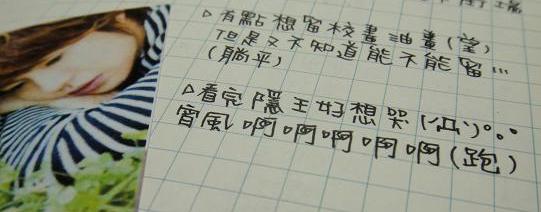 ▷有點想留校畫油畫(望)
但是又不知道能不能留…
(躺平)
▷看完隱王好想哭(ノД')°。°
宵風啊啊啊啊啊(跑)